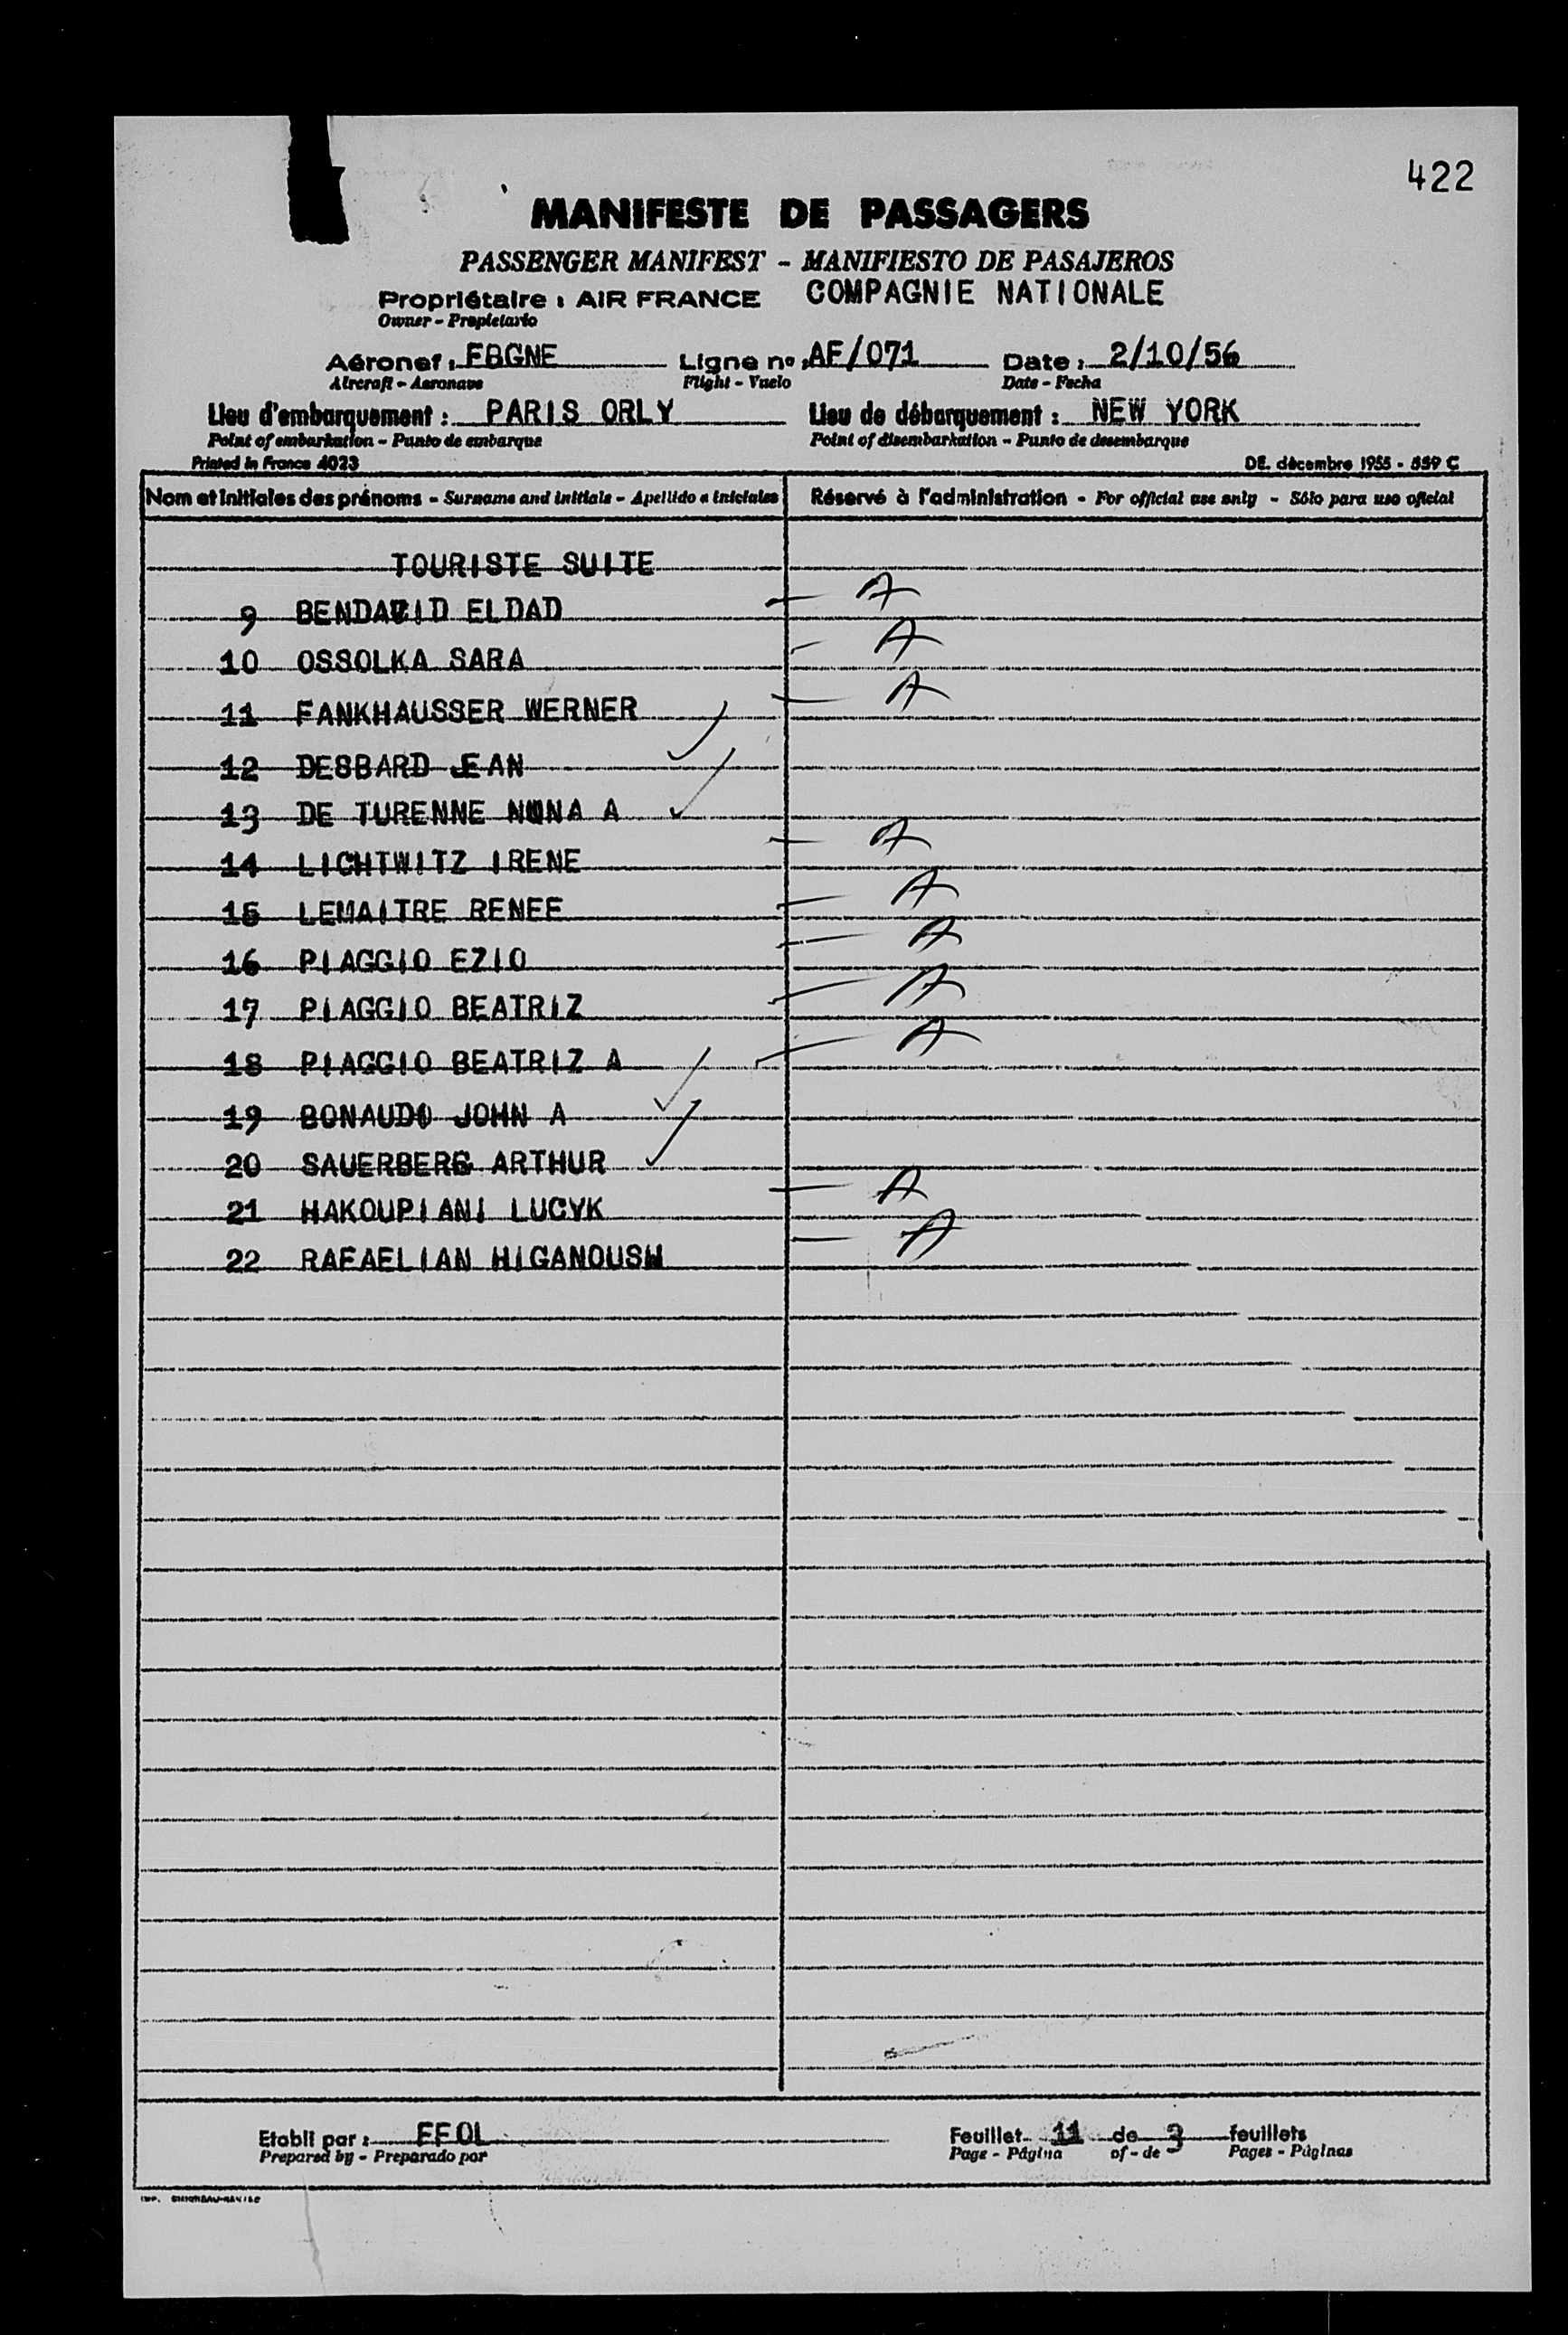 422
MANIFESTE DE PASSAGERS
PASSENGER MANIFEST - MANIFIESTO DE PASAJEROS
Propriétaire : AIR FRANCE COMPAGNIE NATIONALE
Owner - Propietario
Aéronef : FBGNE Ligne nº : AF/071 Date : 2/10/56
Aircraft - Aeronave Flight - Vuelo Date - Fecha
Lieu d'embarquement : PARIS ORLY Lieu de débarquement : NEW YORK
Point of embarkation - Punto de embarque Point of disembarkation - Punto de desembarque
Printed in France 4023 DE. décembre 1955 - 559 C
Nom et initiales des prénoms - Surname and initials - Apellido e iniciales Réservé à l'administration - For official use only - Sólo para uso oficial
TOURISTE SUITE
9 BENDAVID ELDAD A
10 OSSOLKA SARA A
11 FANKHAUSSER WERNER A
12 DESBARD JEAN
13 DE TURENNE NONA A
14 LICHTWITZ IRENE A
15 LEMAITRE RENEE A
16 PIAGGIO EZIO A
17 PIAGGIO BEATRIZ A
18 PIAGGIO BEATRIZ A A
19 BONAUDO JOHN A
20 SAUERBERG ARTHUR
21 HAKOUPIANI LUCYK A
22 RAFAELIAN HIGANOUSH A
Etabli par : FFOL Feuillet 11 de 3 feuillets
Prepared by - Preparado por Page - Página of - de Pages - Páginas
IMP.